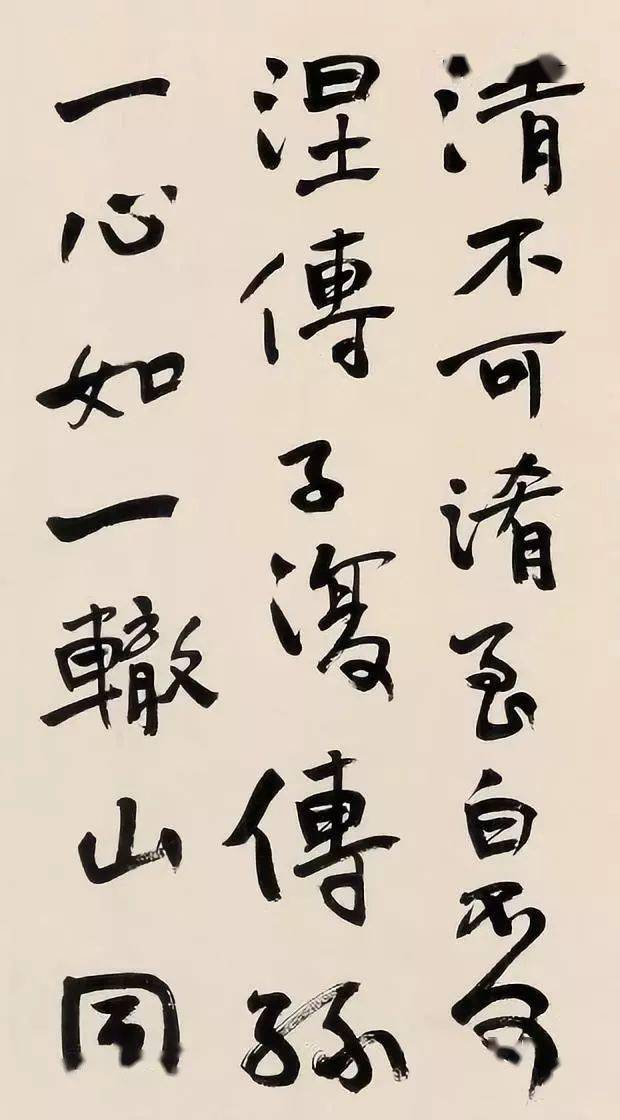 清不可淆至白不可
涅傳子復傳孫
一心如一轍山同